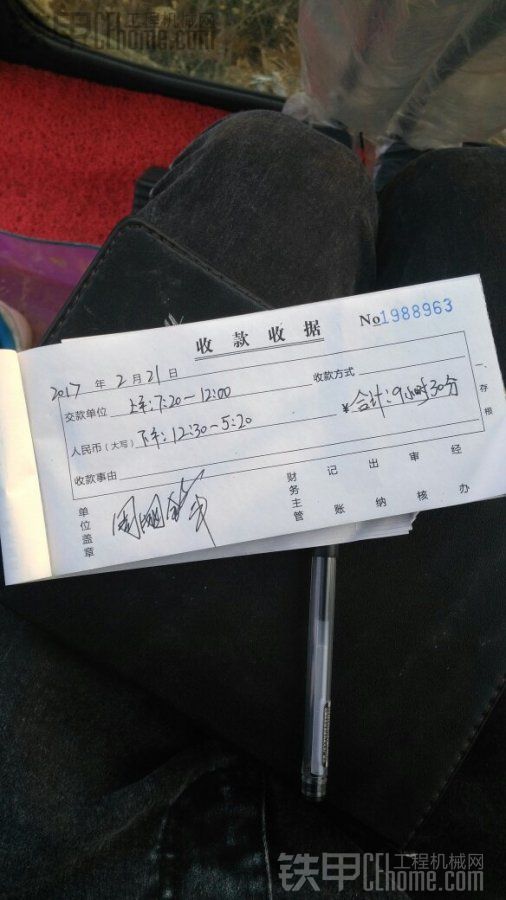 铁甲 工程机械网 CEhome.com
收款收据 No 1988963
2017 年 2 月 21 日
交款单位 上午:7:20—12:00 收款方式
人民币(大写) 下午:12:30—5:20 ¥ 合计:9小时30分
收款事由
一存根
单位盖章 财务主管 记账 出纳 审核 经办
铁甲 工程机械网 CEhome.com